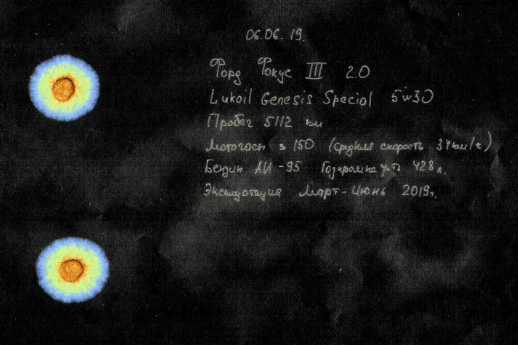 06.06.19.
Форд Фокус III 2.0
Lukoil Genesis Special 5w30
Пробег 5112 км
Моточасы ≈ 150 (средняя скорость 34км/ч)
Бензин АИ-95 428л.
Эксплуатация Март-Июнь 2019г.